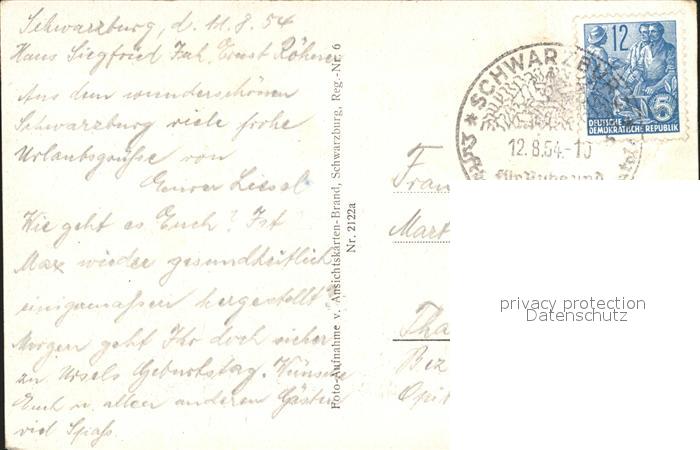 Schwarzburg, d. 11.8.54
Hans Siegfried Jah. Ernst Röhner
Aus dem wunderschönen
Schwarzburg viele frohe
Urlaubsgrüsse von
Eurer Liesel
Wie geht es Euch? Ist
Max wieder gesundheitlich
einigemassen hergestellt?
Morgen geht Ihr doch sicher
zu Ursels Geburtstag. Wünsche
Euch u. allen anderen Gästen
viel Spass.
Foto-Aufnahme v. Ansichtskarten-Brand, Schwarzburg, Reg.-Nr. 6
Nr. 2122a
* SCHWARZBURG
12.8.54.-10
für Ruhe und
12
5
DEUTSCHE
DEMOKRATISCHE REPUBLIK
Frau
Mart
Tha
Bez
Opit
privacy protection
Datenschutz